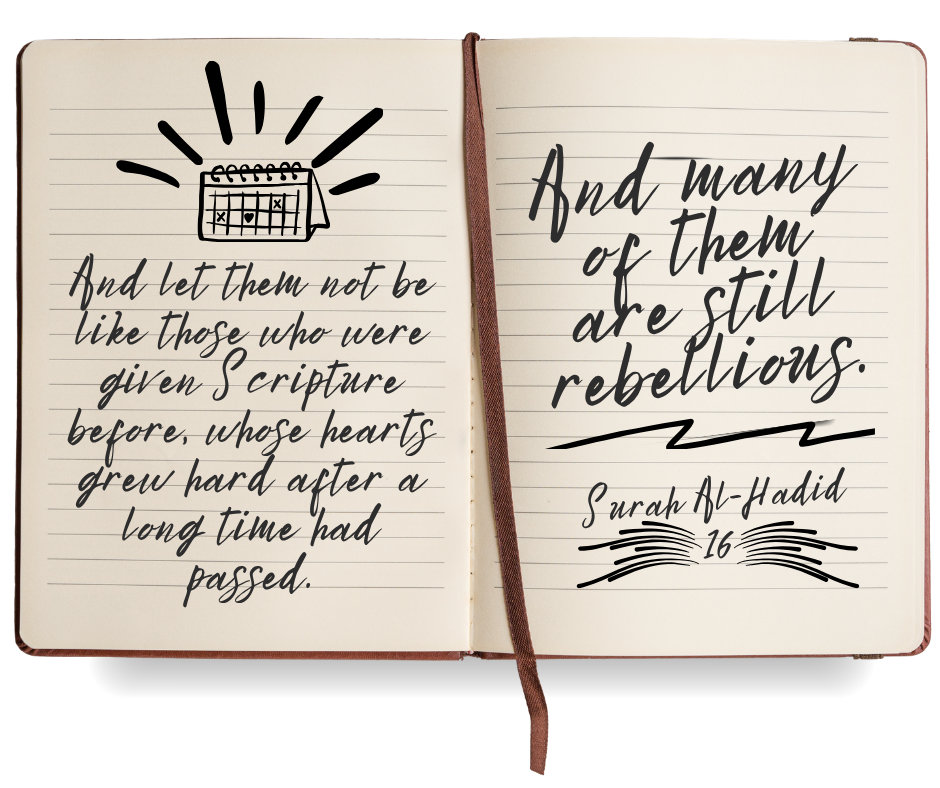 And let them not be
like those who were
given Scripture
before, whose hearts
grew hard after a
long time had
passed.
And many
of them
are still
rebellious.
Surah Al-Hadid
16